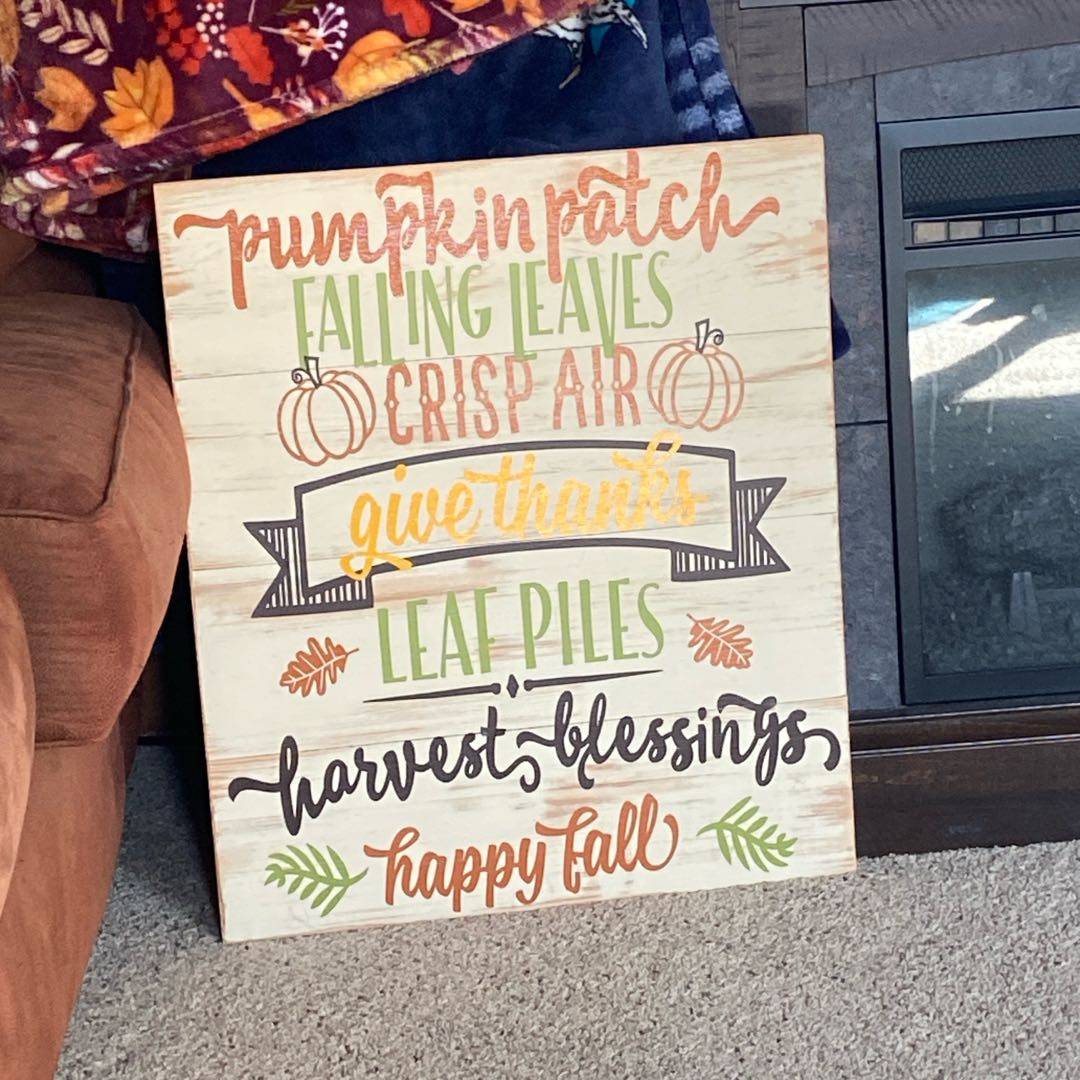 pumpkin patch
FALLING LEAVES
CRISP AIR
give thanks
LEAF PILES
harvest blessings
happy fall